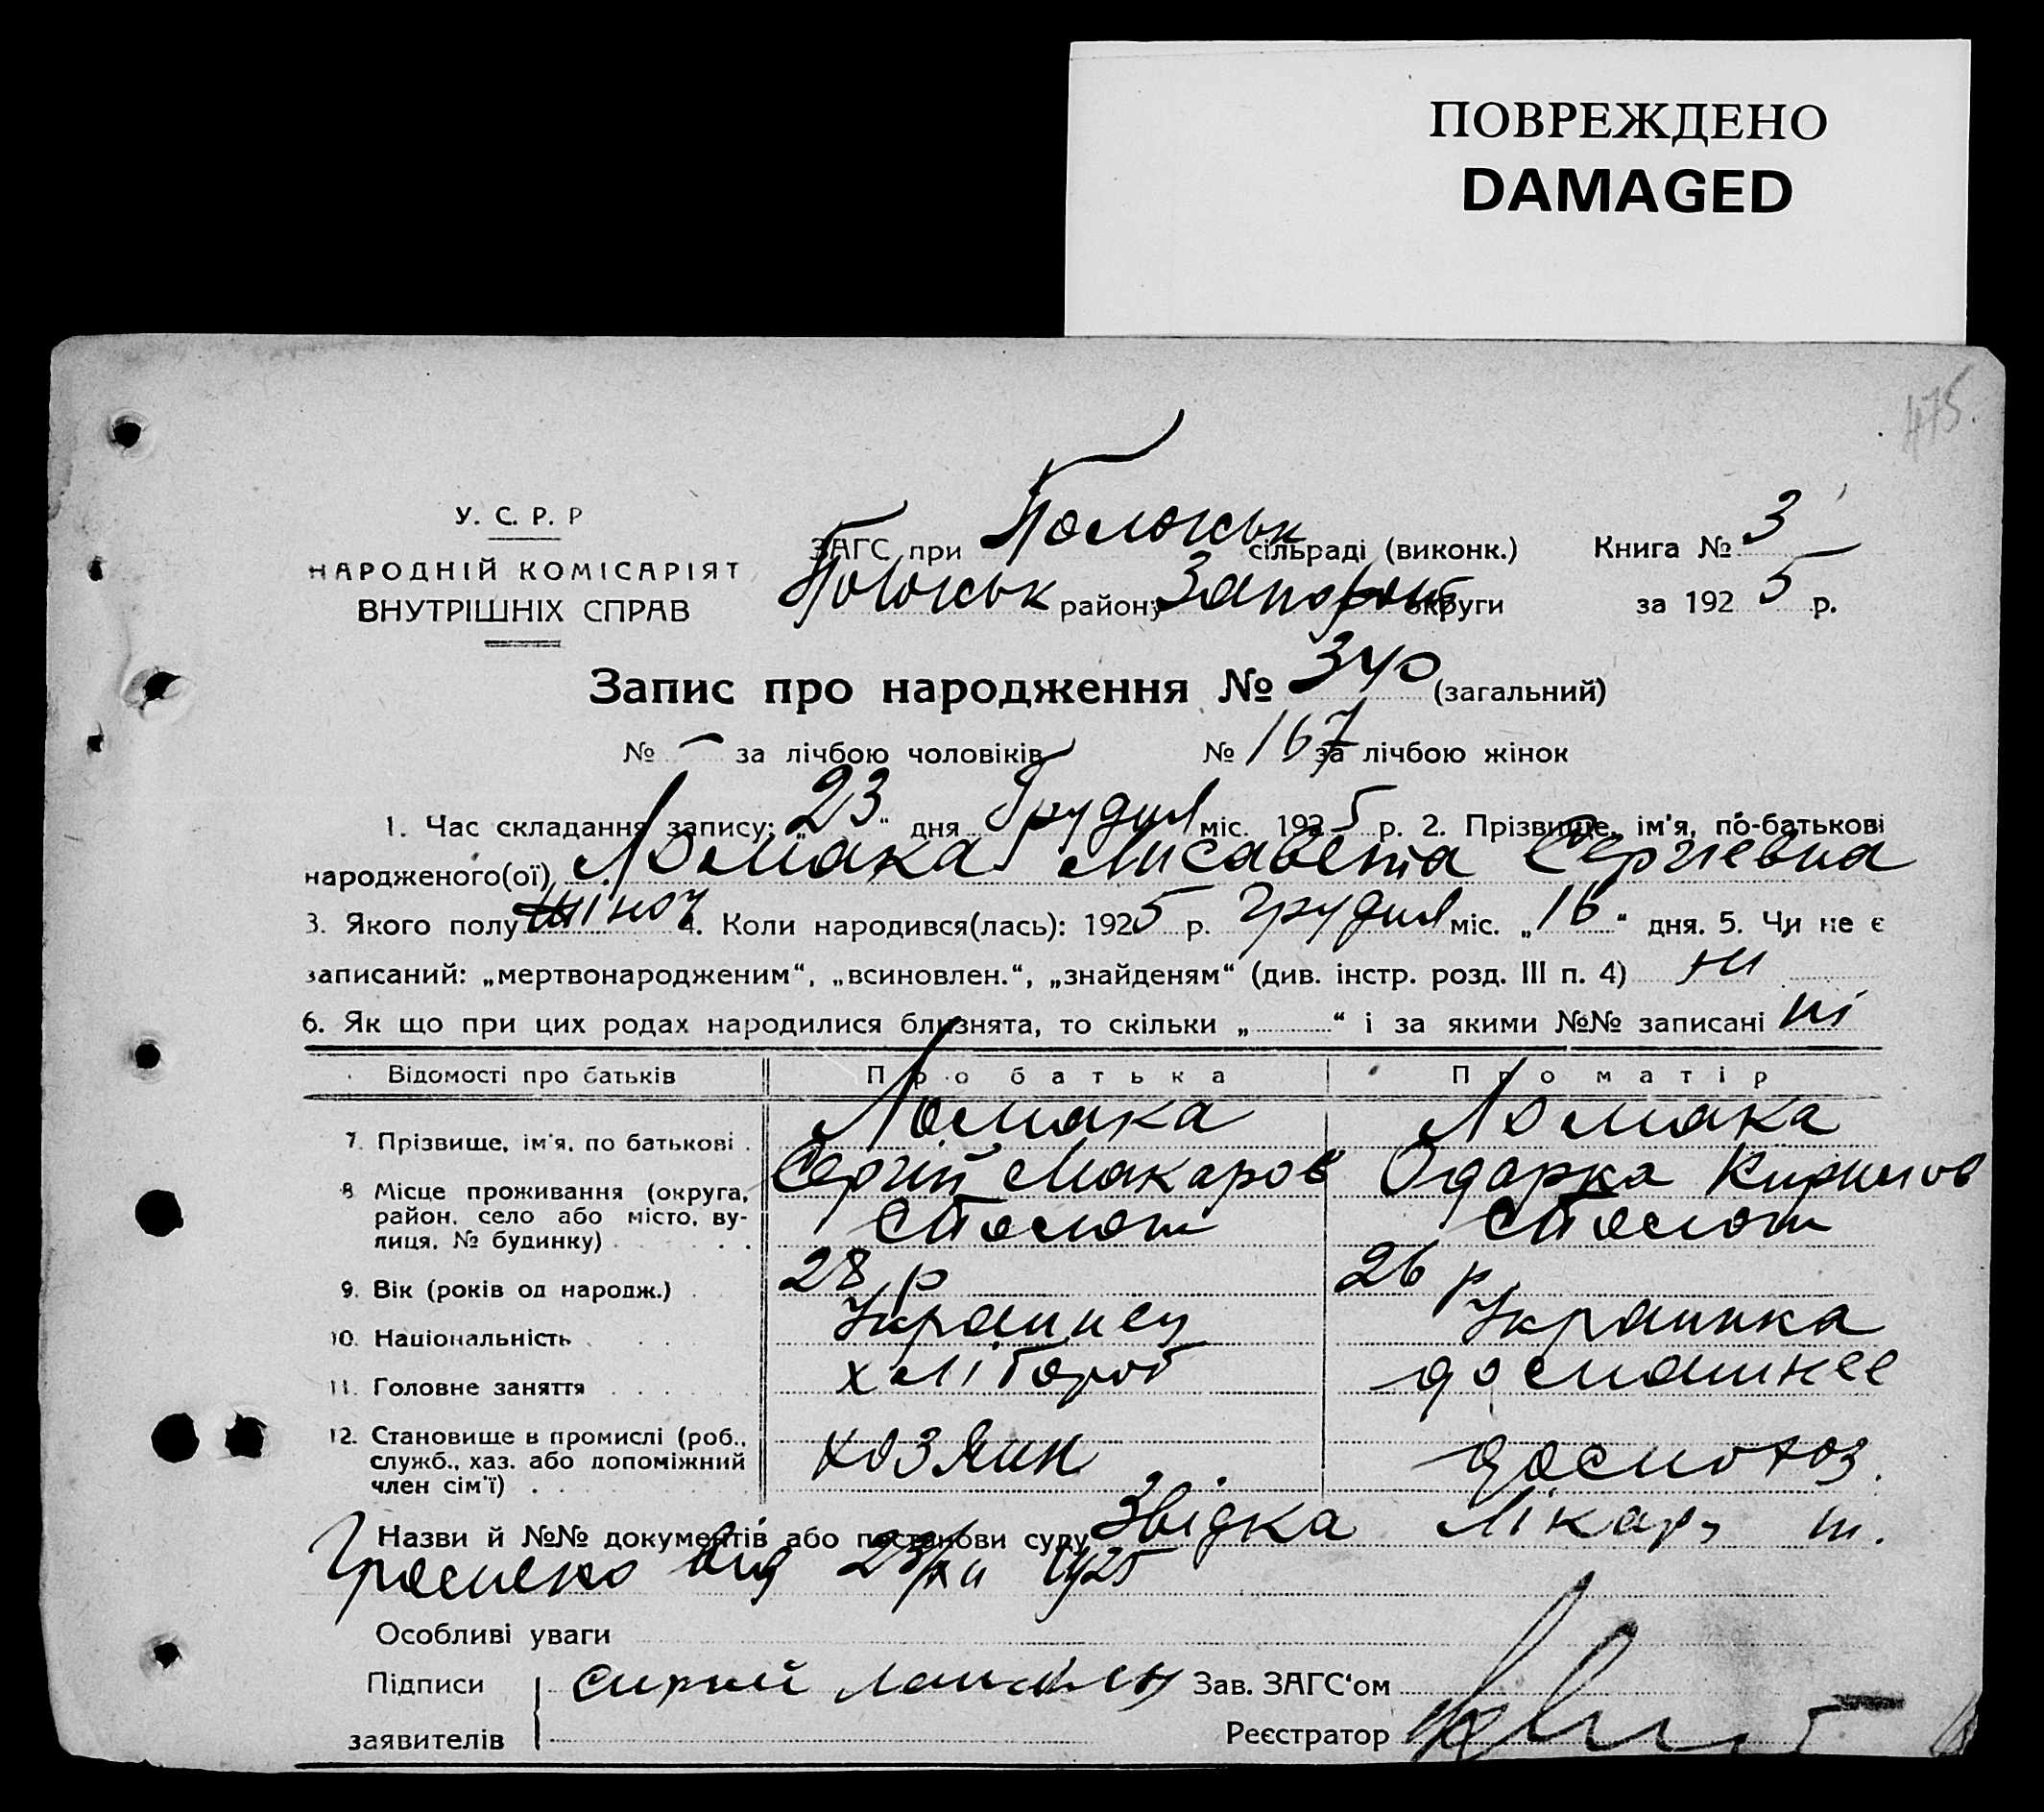 ПОВРЕЖДЕНО
DAMAGED
475.
У. С. Р. Р
НАРОДНІЙ КОМІСАРІЯТ
ВНУТРІШНІХ СПРАВ
ЗАГС при Пологськ сільраді (виконк.) Книга № 3
Пологськ району Запоріж округи за 1925 р.
Запис про народження № 340 (загальний)
№ – за лічбою чоловіків № 167 за лічбою жінок
1. Час складання запису: „23“ дня Грудня міс. 1925 р. 2. Прізвище, ім'я, по-батькові
народженого(ої) Ломака Лисавета Сергіевна
3. Якого полу жіноч 4. Коли народився(лась): 1925 р. Грудня міс. „16“ дня. 5. Чи не є
записаний: „мертвонародженим“, „всиновлен.“, „знайденям“ (див. інстр. розд. III п. 4) ні
6. Як що при цих родах народилися близнята, то скільки „............“ і за якими №№ записані ні
Відомості про батьків Про батька Про матір
7. Прізвище, ім'я, по батькові Ломака Сергій Макаров Ломака Одарка Кирилов
8 Місце проживання (округа, район, село або місто, вулиця, № будинку) с Полог с Полог
9. Вік (років од народж.) 28 р 26 р
10. Національність Украинец Украинка
11. Головне заняття хлібороб домашнее
12. Становище в промислі (роб., служб., хаз. або допоміжний член сім'ї) хозяин домохоз.
Назви й №№ документів або постанови суду Звідка Лікаря т.
від 23/XII 1925
Особливі уваги
Підписи Зав. ЗАГС'ом
заявителів Реєстратор